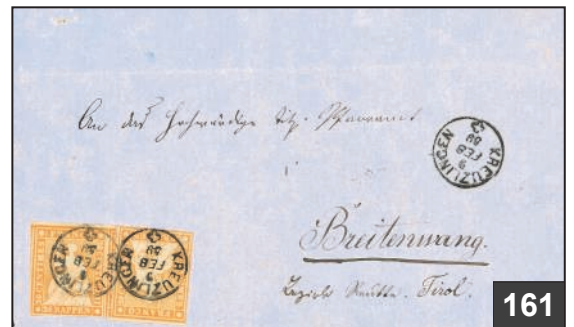 An das Hochwürdige Titz. Pfarramt
KREUZLINGEN
9
FEB
Breitenwang.
Bezirk Reutte. Tirol.
KREUZLINGEN
9
FEB
KREUZLINGEN
9
FEB
FRANCO
161